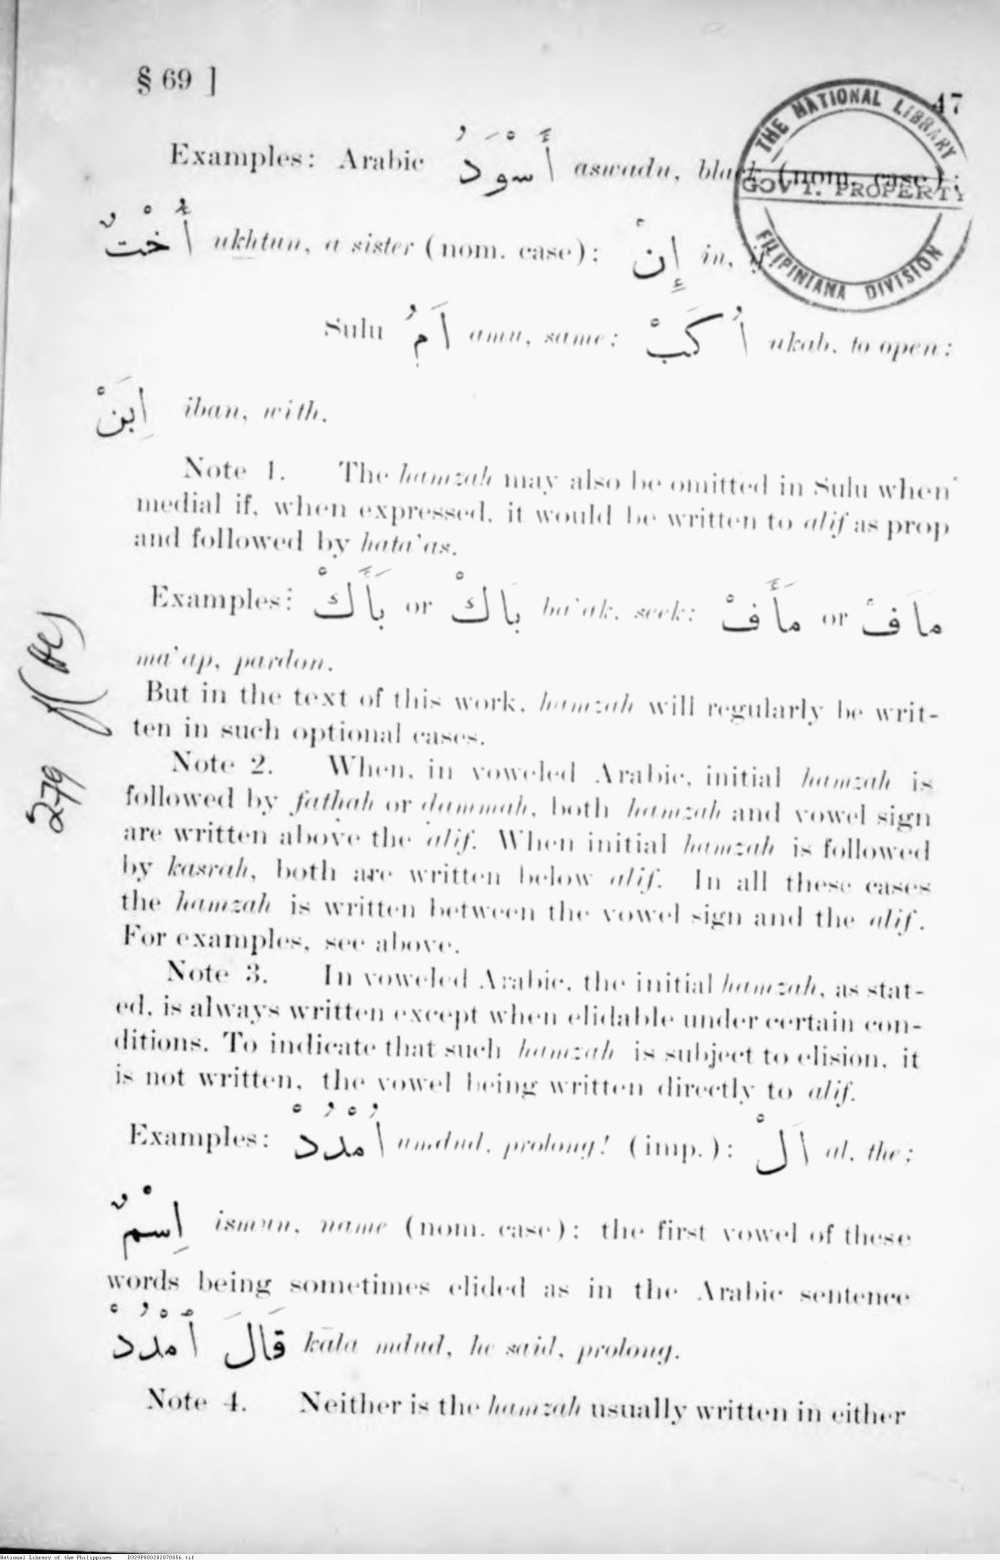 § 69 ]
47
Examples: Arabic أَسْوَدُ aswadu, black (nom. case);
أُخْتٌ ukhtun, a sister (nom. case); إِنْ in, if
Sulu اَمُ amu, same; اُكَبْ ukab, to open;
اِبَنْ iban, with.
Note 1. The hamzah may also be omitted in Sulu when
medial if, when expressed, it would be written to alif as prop
and followed by hata'as.
Examples: بَأَكْ or بَاكْ ba'ak, seek; مَأَفْ or مَافْ
ma'ap, pardon.
But in the text of this work, hamzah will regularly be writ-
ten in such optional cases.
Note 2. When, in voweled Arabic, initial hamzah is
followed by fatḥah or ḍammah, both hamzah and vowel sign
are written above the alif. When initial hamzah is followed
by kasrah, both are written below alif. In all these cases
the hamzah is written between the vowel sign and the alif.
For examples, see above.
Note 3. In voweled Arabic, the initial hamzah, as stat-
ed, is always written except when elidable under certain con-
ditions. To indicate that such hamzah is subject to elision, it
is not written, the vowel being written directly to alif.
Examples: اُمْدُدْ umdud, prolong! (imp.); اَلْ al, the;
اِسْمٌ ismun, name (nom. case); the first vowel of these
words being sometimes elided as in the Arabic sentence
قَالَ ٱمْدُدْ kāla mdud, he said, prolong.
Note 4. Neither is the hamzah usually written in either
THE NATIONAL LIBRARY
GOV'T. PROPERTY
FILIPINIANA DIVISION
279
National Library of the Philippines